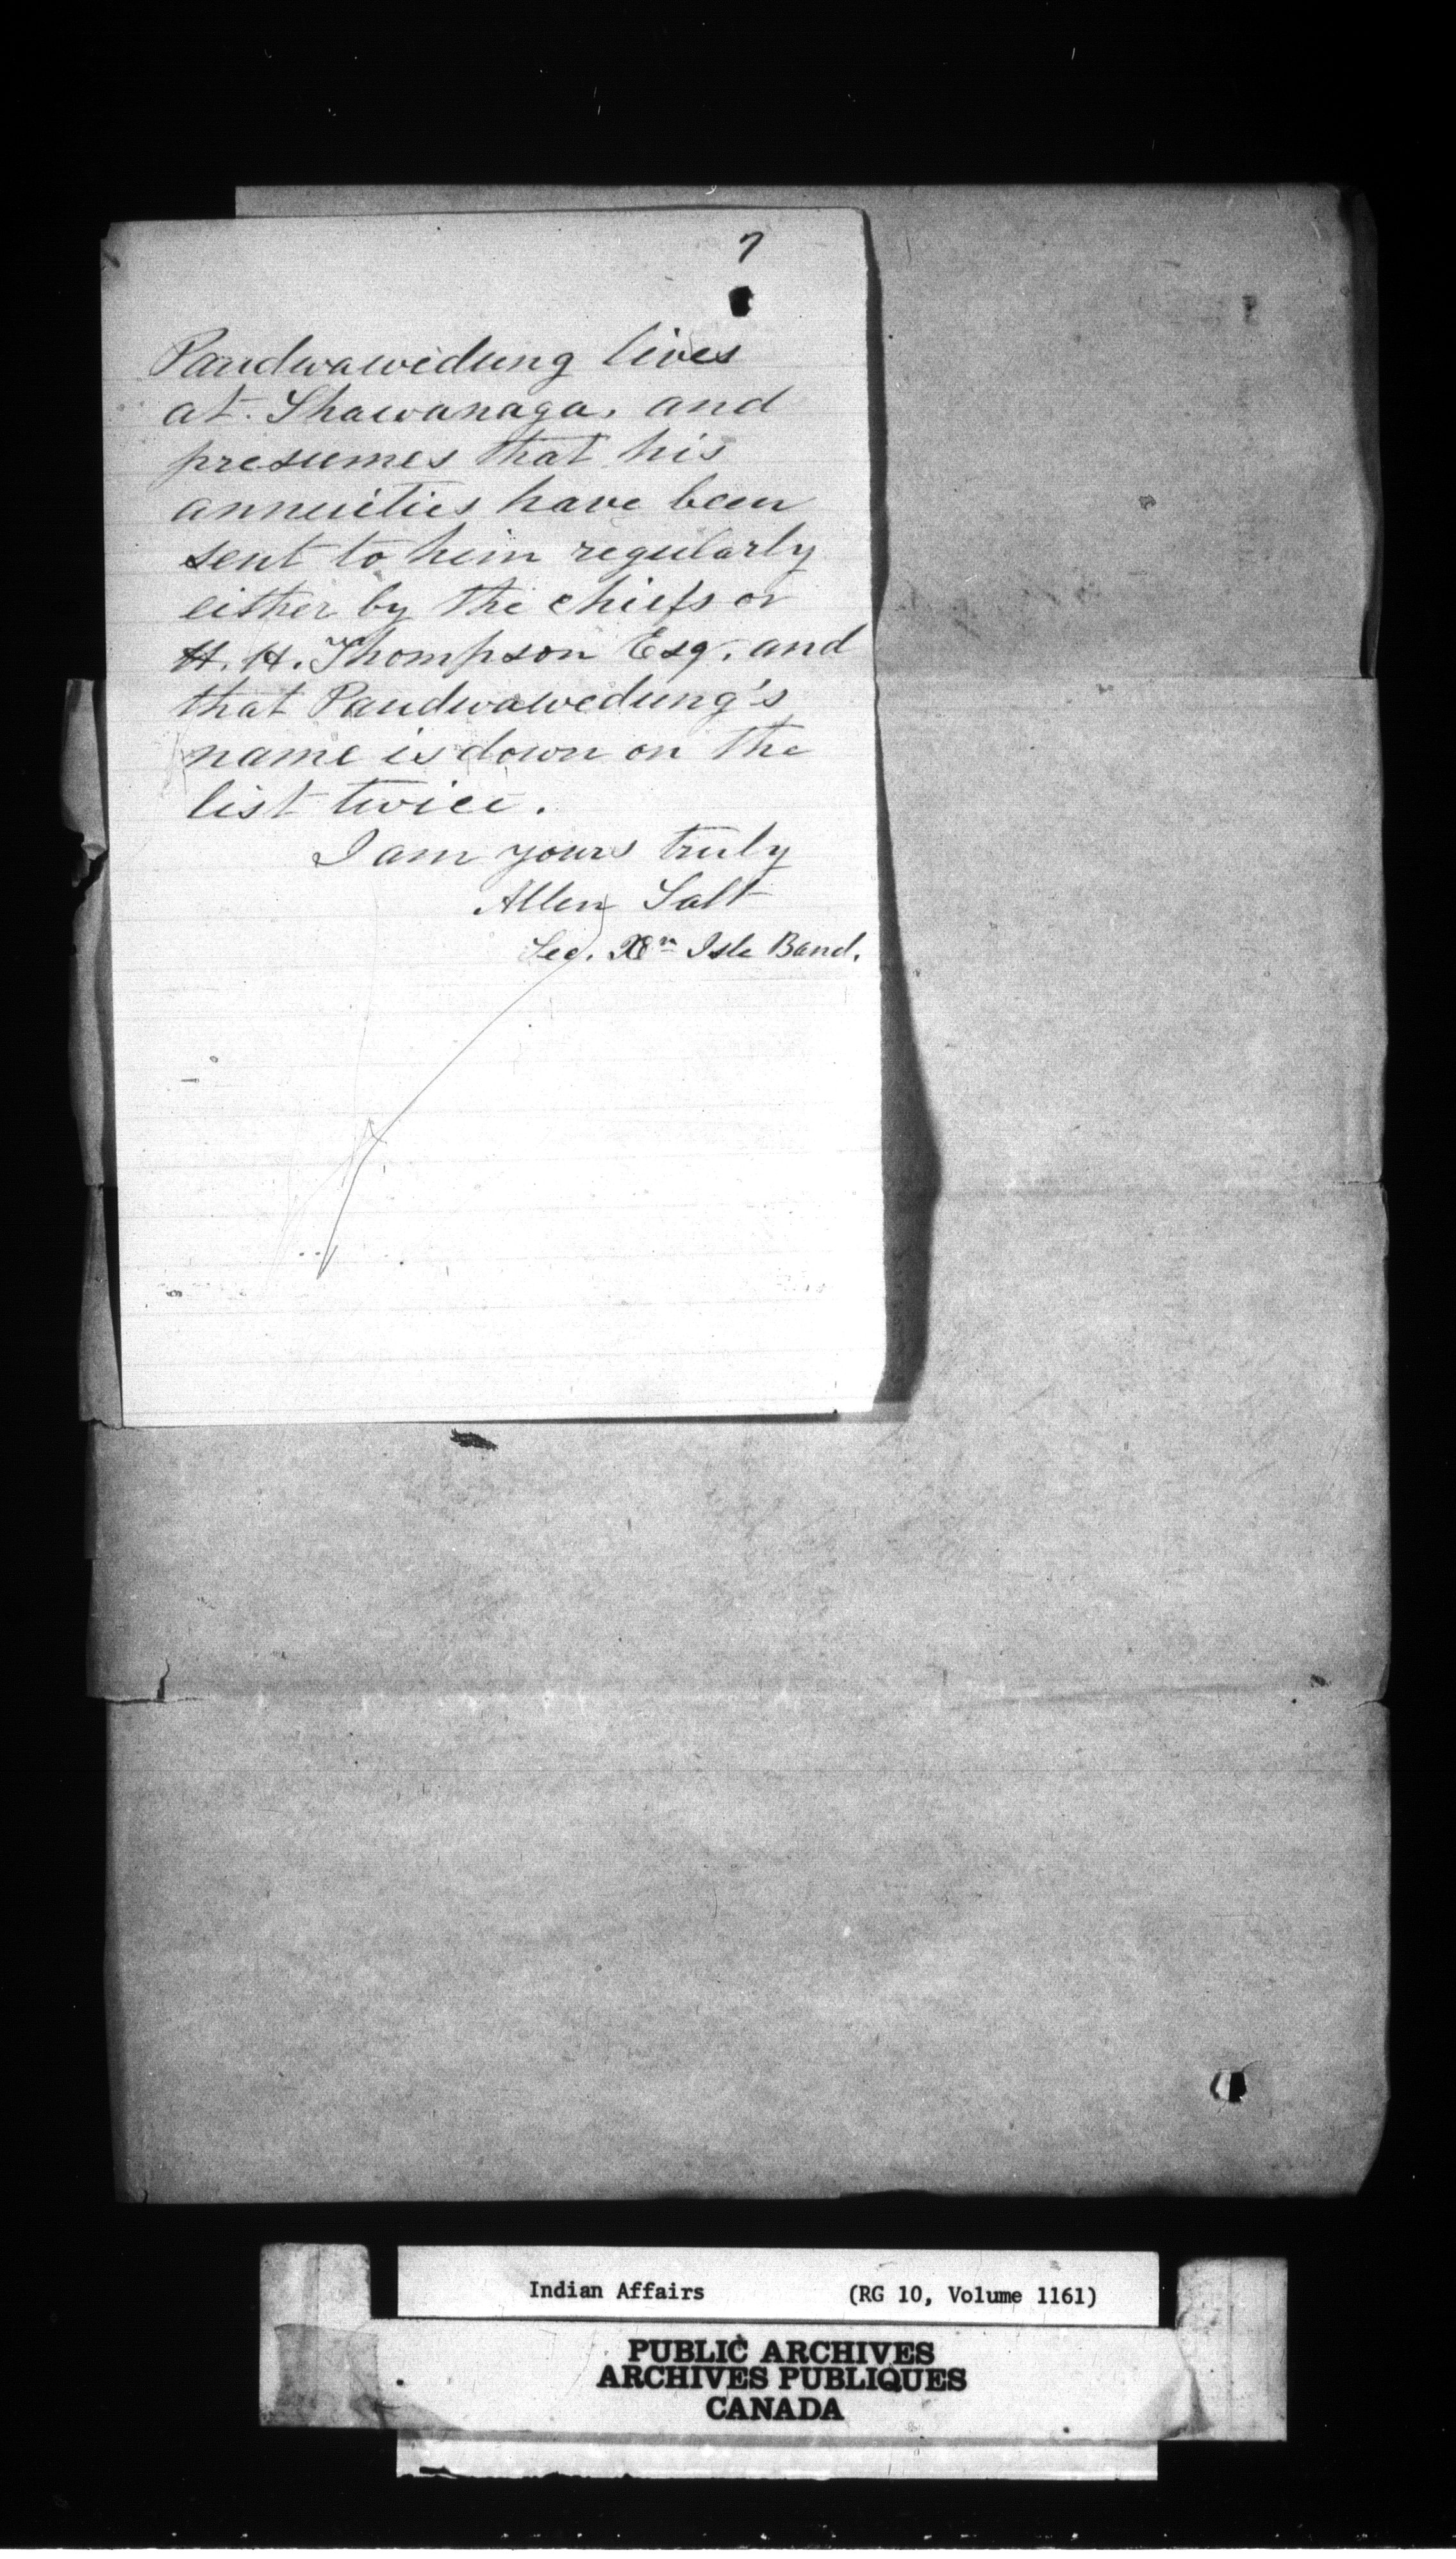 7
Paudwawedung lives
at Shawanaga, and
presumes that his
annuities have been
sent to him regularly
either by the chiefs or
H. H. Thompson Esq. and
that Paudwawedung's
name is down on the
list twice.
I am yours truly
Allen Salt
Sec. Xn Isle Band.
Indian Affairs (RG 10, Volume 1161)
PUBLIC ARCHIVES
ARCHIVES PUBLIQUES
CANADA